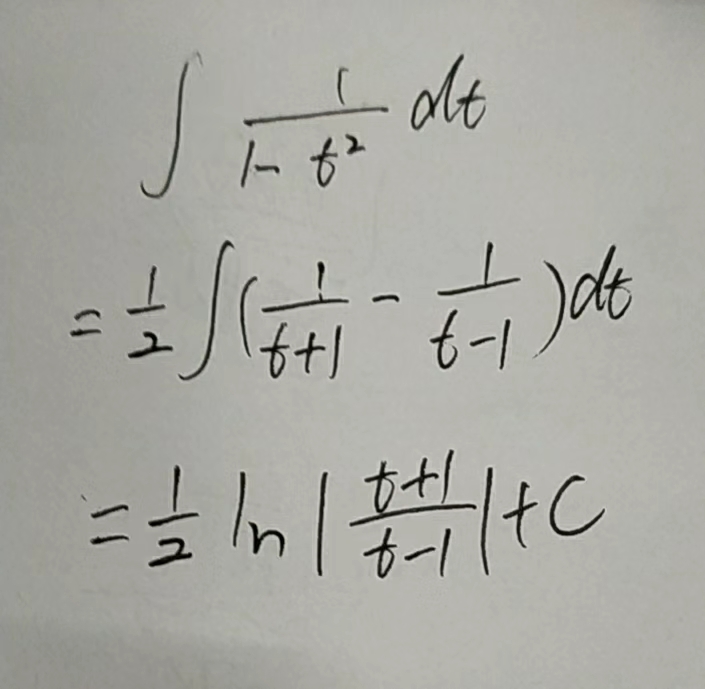 ∫ 1/(1-t²) dt
= 1/2 ∫(1/(t+1) - 1/(t-1))dt
= 1/2 ln|(t+1)/(t-1)|+C